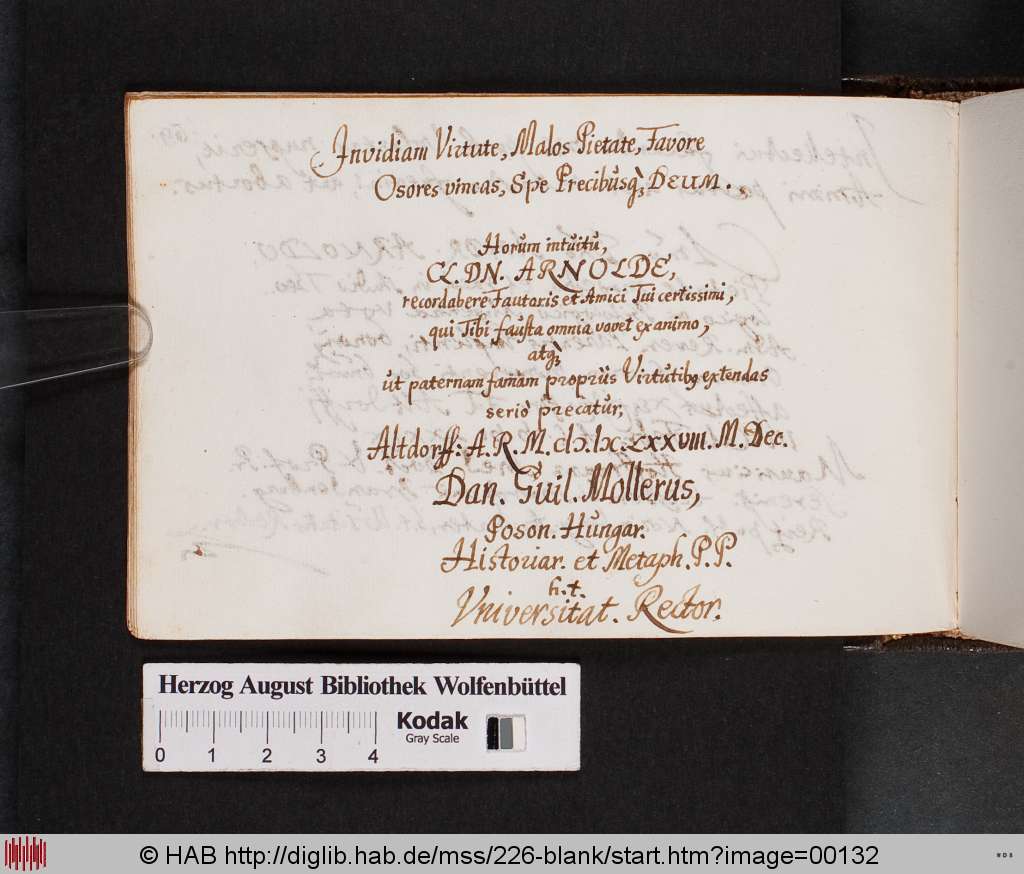 Invidiam Virtute, Malos Pietate, Favore
Osores vincas, Spe Precibusq́;, DEUM.
Horum intuitu,
CL. DN. ARNOLDE,
recordabere Fautoris et Amici Tui certissimi,
qui Tibi fausta omnia vovet ex animo,
atq́;
ut paternam famam propriis Virtutibq extendas
seriò precatur,
Altdorff: A. R. M. cIɔ. Iɔc. LXXVIII. M. Dec.
Dan. Guil. Mollerus,
Poson. Hungar.
Historiar. et Metaph. P. P.
h. t.
Universitat. Rector.
Herzog August Bibliothek Wolfenbüttel
Kodak
Gray Scale
0 1 2 3 4
© HAB http://diglib.hab.de/mss/226-blank/start.htm?image=00132